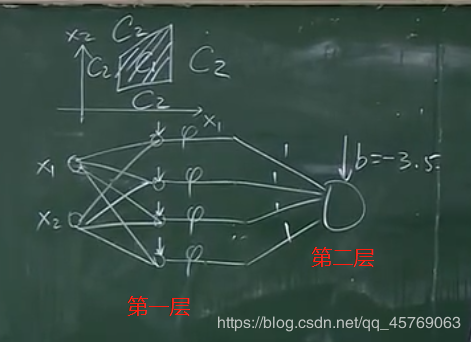 x₂ C₂
C₂ C₁ C₂
C₂
x₁
φ
x₁ φ 1 b=-3.5
φ 1
x₂ φ 1
φ 1
第二层
第一层
https://blog.csdn.net/qq_45769063